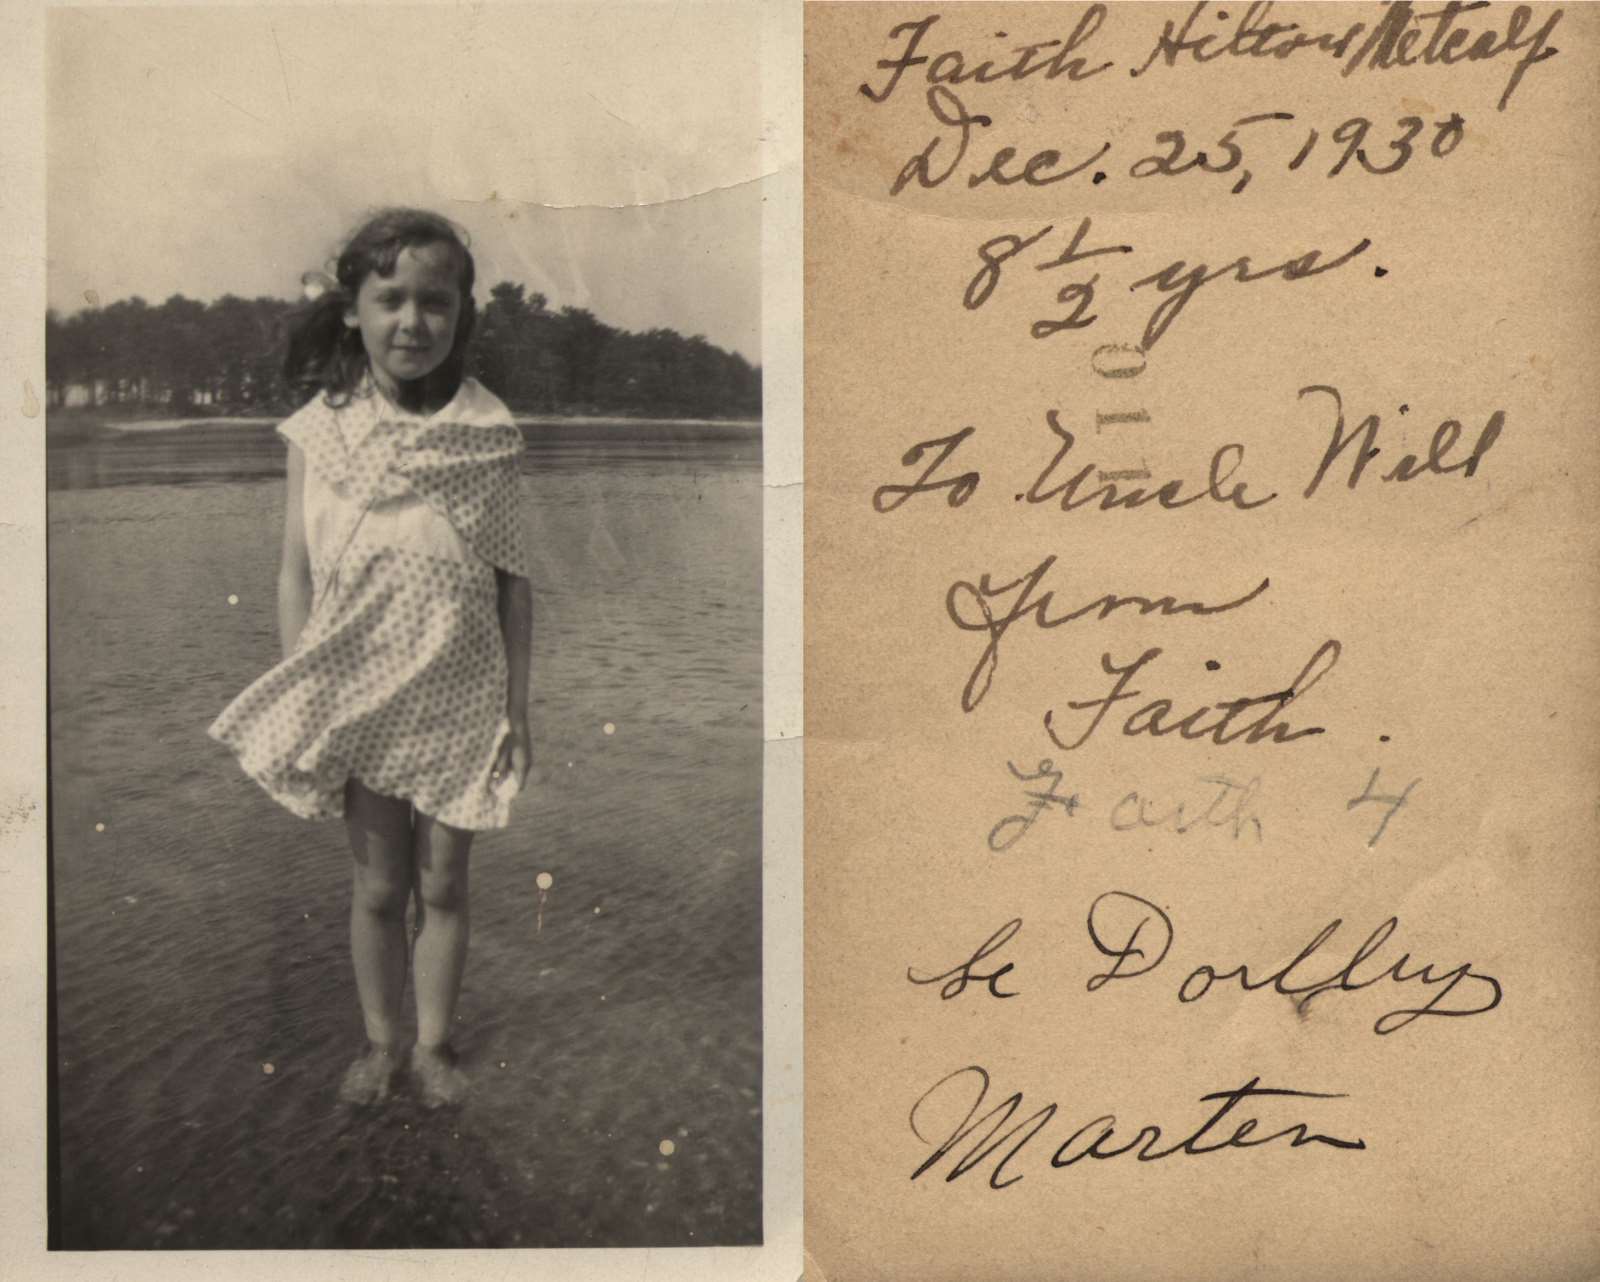 Faith Hilton Metcalf
Dec. 25, 1930
8 1/2 yrs.
110
To Uncle Will
from
Faith.
Faith 4
Marten